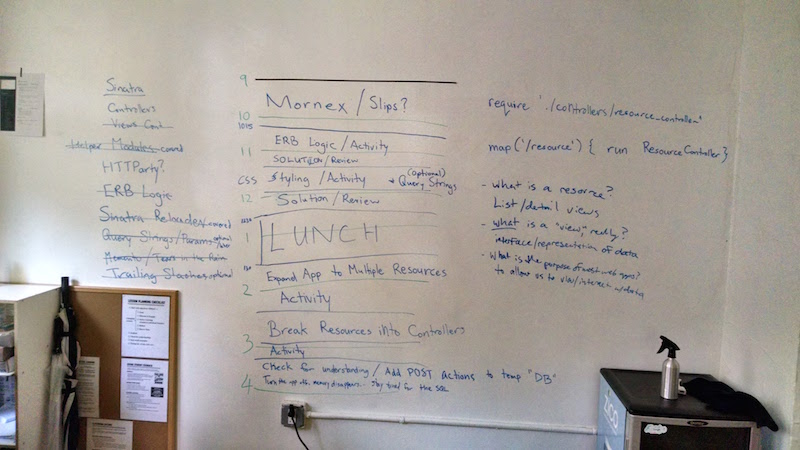 Sinatra
Controllers
Views Cont
Helper Modules covered
HTTParty?
ERB Logic
Sinatra Reloader/covered
Query Strings/Params optional
Memento/Tears in the Rain
Trailing Slashes optional
9
Mornex/Slips?
10
1015
ERB Logic/Activity
11
SOLUTION/Review
CSS Styling/Activity → Query Strings (optional)
12
Solution/Review
1230
1
LUNCH
Expand App to Multiple Resources
2
Activity
Break Resources into Controllers
3
Activity
Check for understanding/Add POST actions to temp "DB"
4
Turn the app off, memory disappears. Stay tuned for the SQL
require './controllers/resource_controller'
map('/resource') { run ResourceController }
- What is a resource?
List/detail views
- What is a "view," really?
interface/representation of data
- What is the purpose of most web apps?
to allow us to view/interact w/ data
LESSON PLANNING CHECKLIST